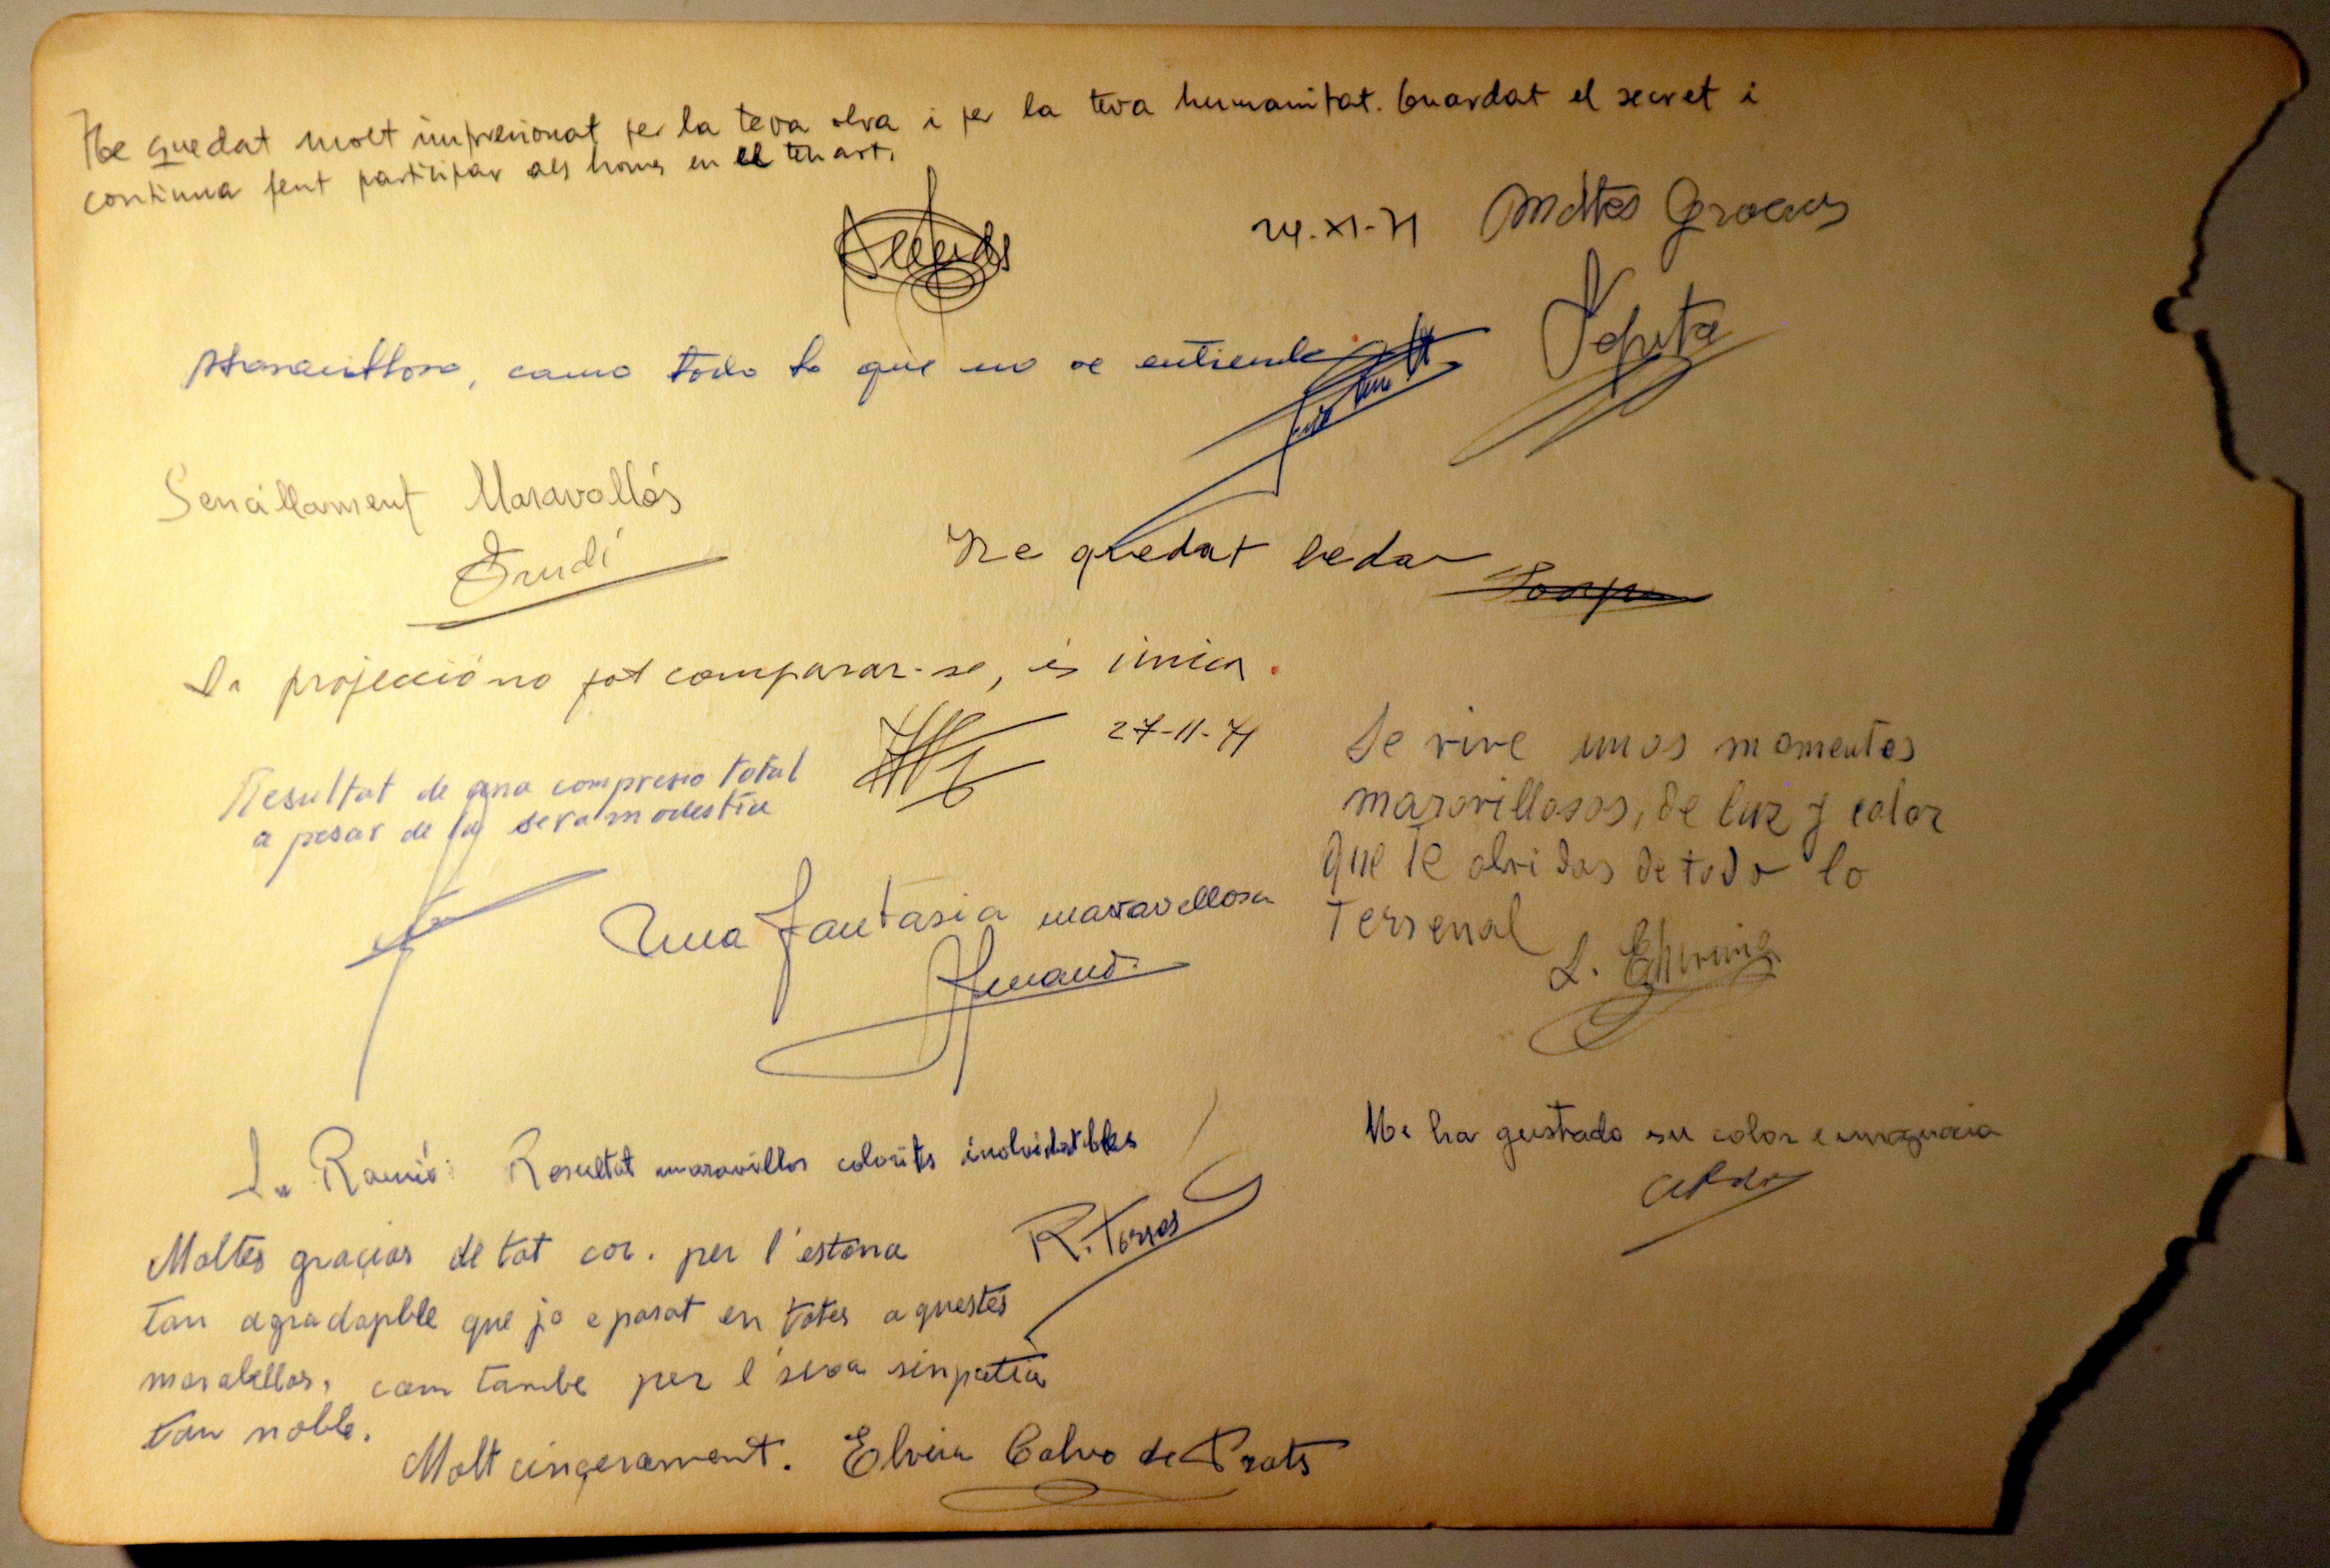 He quedat molt impresionat per la teva obra i per la teva humanitat. Guardat el secret i
continua fent participar als homes en el teu art.
24-XI-71 Moltes Gracies
Pepita
Maravilloso, como todo lo que no se entiende
Sencillament Maravollós
Trudi
He quedat vedar
La projecció no pot comparar-se, és única.
27-11-71
Resultat de una compresio total
a pesar de la seva modestia
Se vive unos momentos
maravillosos, de luz y color
que te olvidas de todo lo
Terrenal
Una fantasia maravellosa
Sr. Ramió: Resultat maravillos colorits inolvidatbles
R. Torras
Me ha gustado su color e
Moltes gracias de tot cor. per l'estona
tan agradapble que jo e pasat en totes aquestes
marabellas, com tambe per l'seva sinpatia
tan noble.
Molt cinçerament. Elvira Calvo de Prats